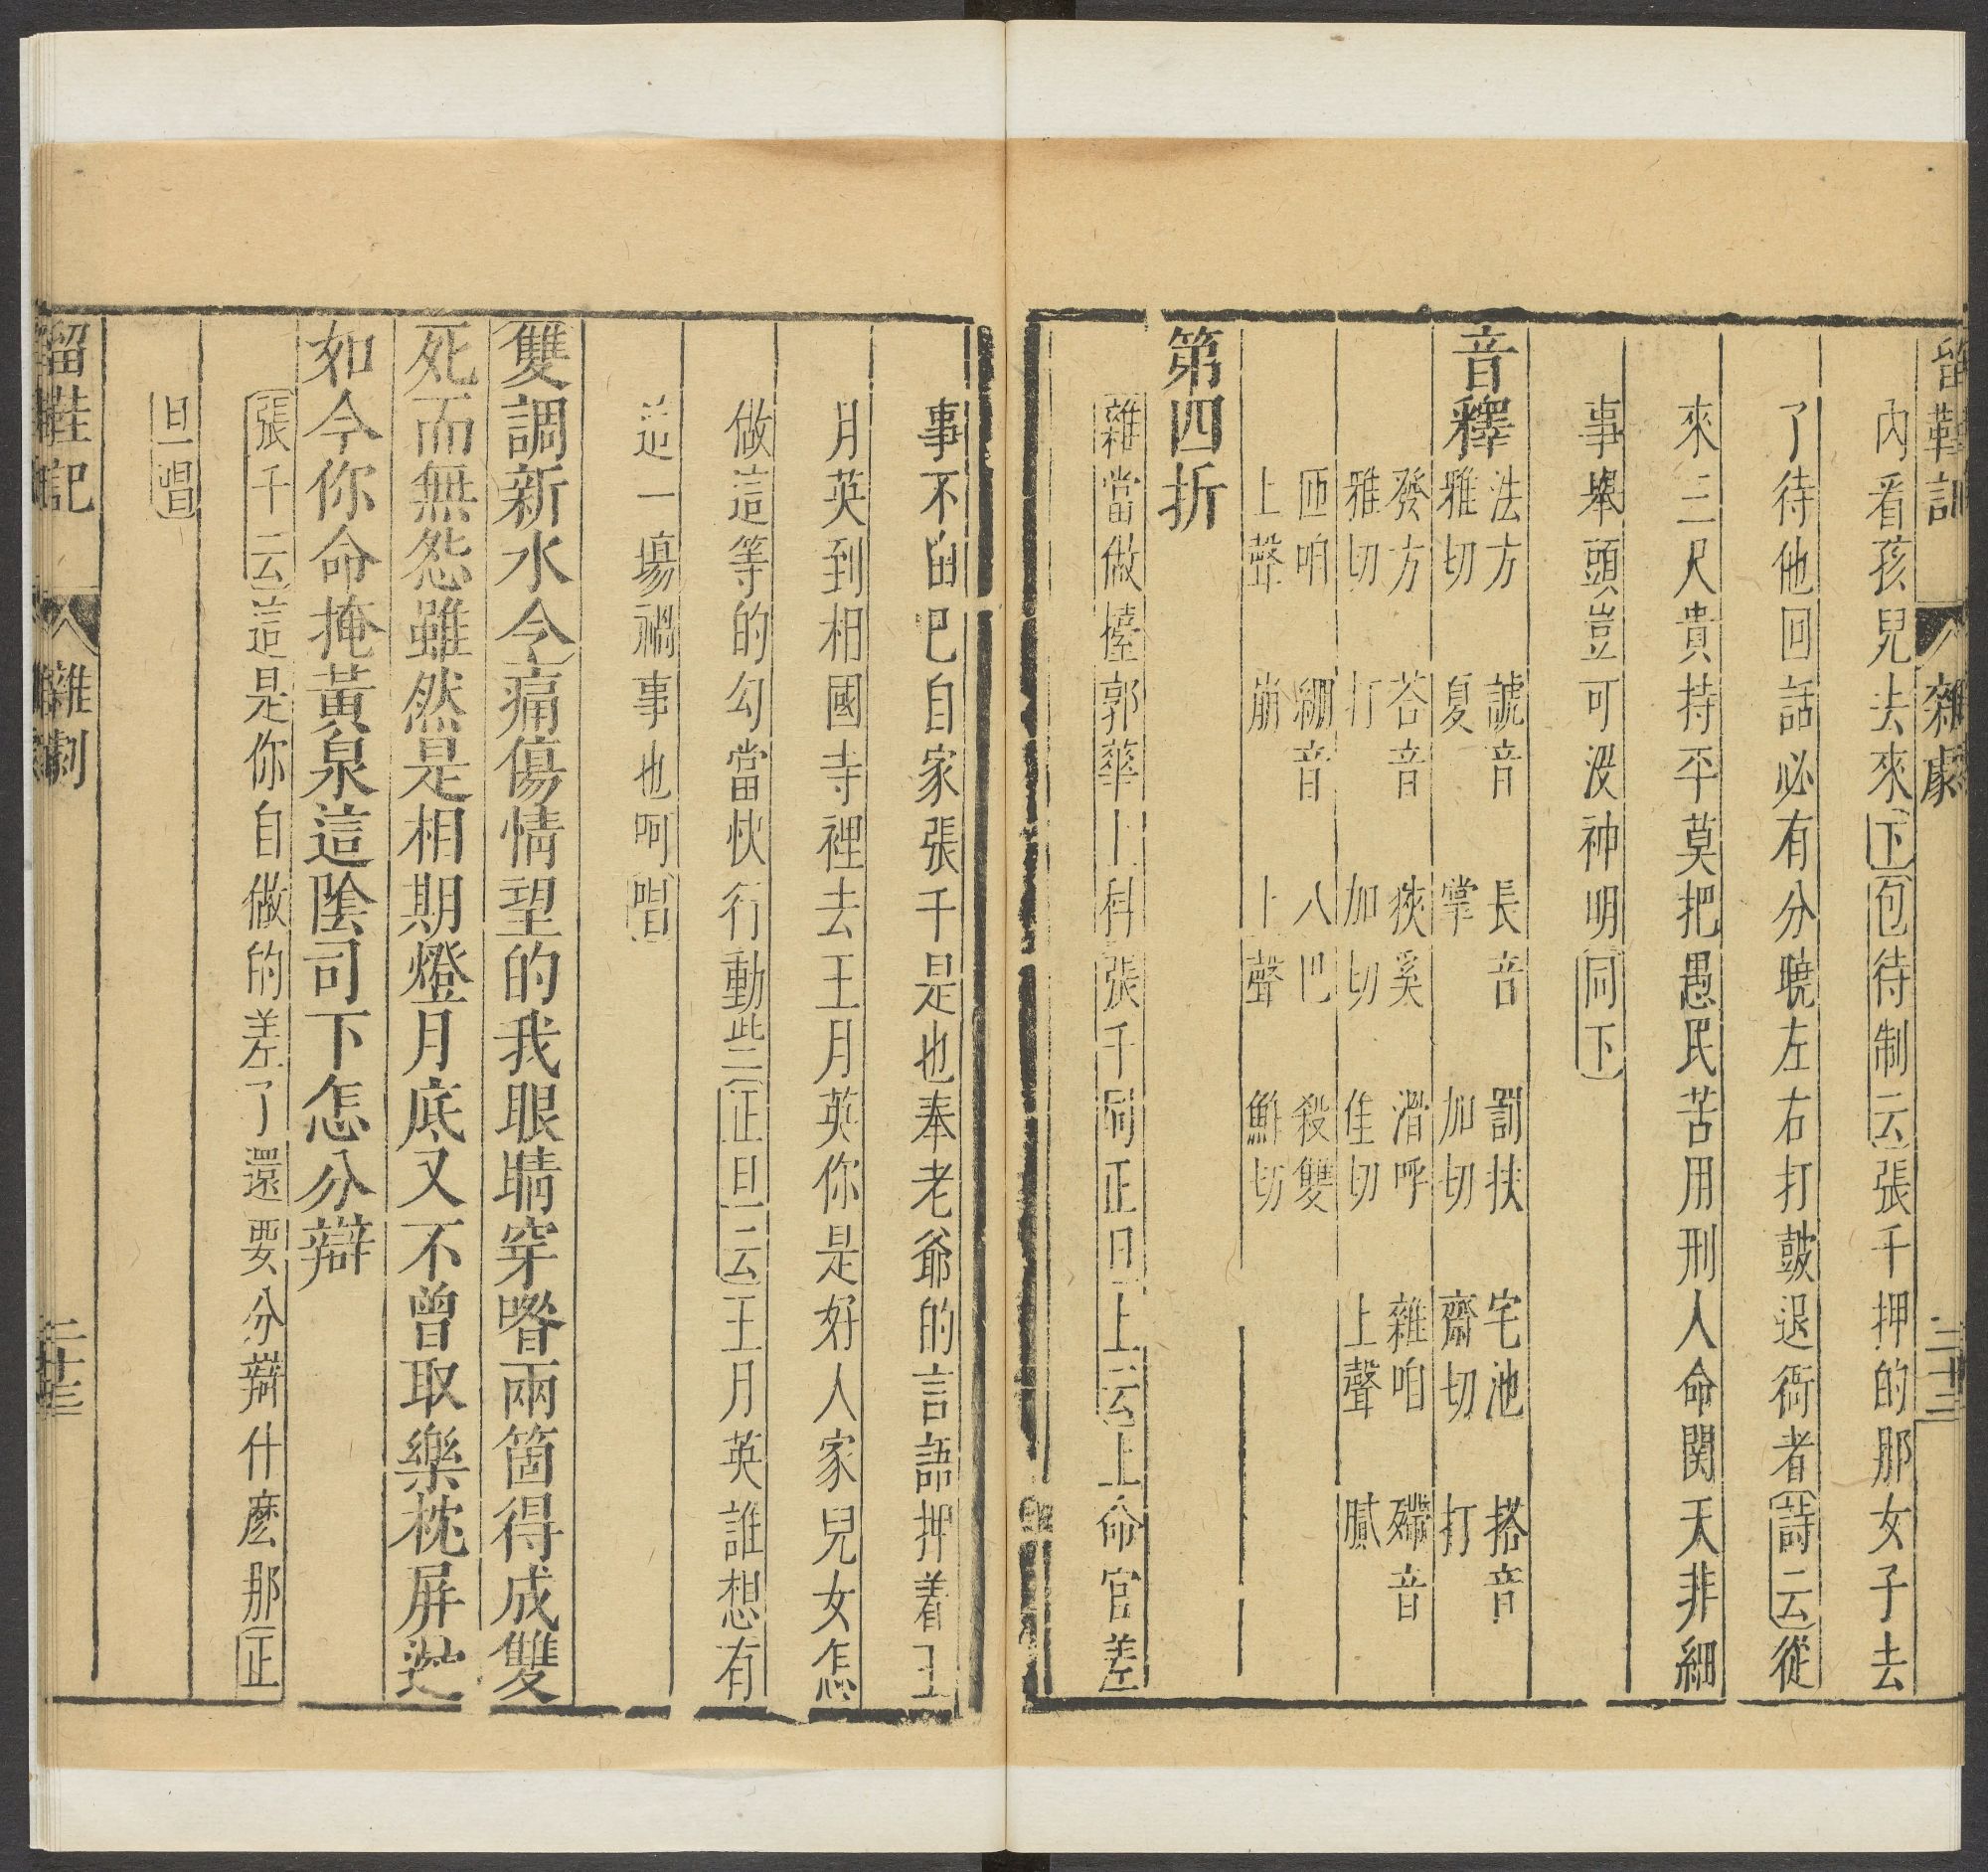 留鞋記 雜劇 二十三
內看孩兒去來下包待制云張千押的那女子去
了待他回話必有分曉左右打鼓退衙者詩云從
來三尺貴持平莫把愚民苦用刑人命関天非細
事舉頭豈可没神明同下
音釋 法方雅切 諕音夏 長音掌 罰扶加切 宅池齋切 搭音打
發方雅切 荅音打 狹奚加切 滑呼佳切 雜咱上聲 殢音膩
匝咱上聲 繃音崩 八巴上聲 殺雙鮓切
第四折
雜當做擡郭華上科張千同正旦上云上命官差
事不由己自家張千是也奉老爺的言語押着王
月英到相國寺裡去王月英你是好人家兒女怎
做這等的勾當快行動些正旦云王月英誰想有
這一場禍事也呵唱
雙調新水令痛傷情望的我眼睛穿喒兩箇得成雙
死而無怨雖然是相期燈月底又不曾取樂枕屏邊
如今你命掩黃泉這陰司下怎分辯
張千云這是你自做的差了還要分辯什麽那正
旦唱
留鞋記 雜劇